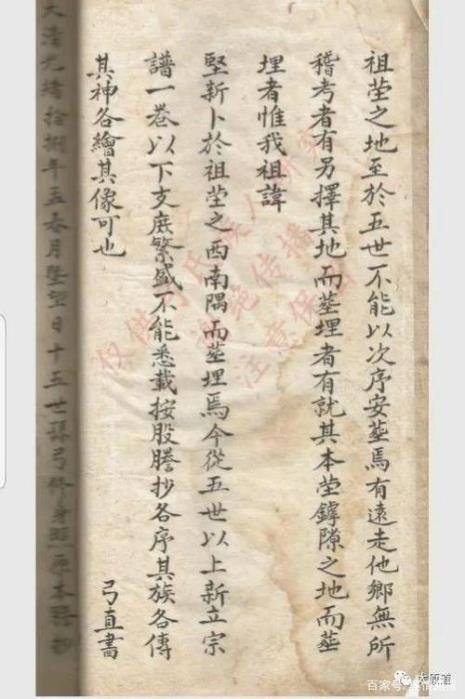 祖茔之地至於五世不能以次序安塟焉有遠走他鄉無所
稽考者有另擇其地而塟埋者有就其本茔鏬隙之地而塟
埋者惟我祖諱
堅新卜於祖茔之西南隅而塟埋焉今從五世以上新立宗
譜一卷以下支庶繁盛不能悉載按股謄抄各序其族各傳
其神各繪其像可也
弓直書
大清光緒拾捌年五春月望日十五世孫弓修身照原本抄
仅供弓氏族人研究
谢绝传播
注意保
百家号